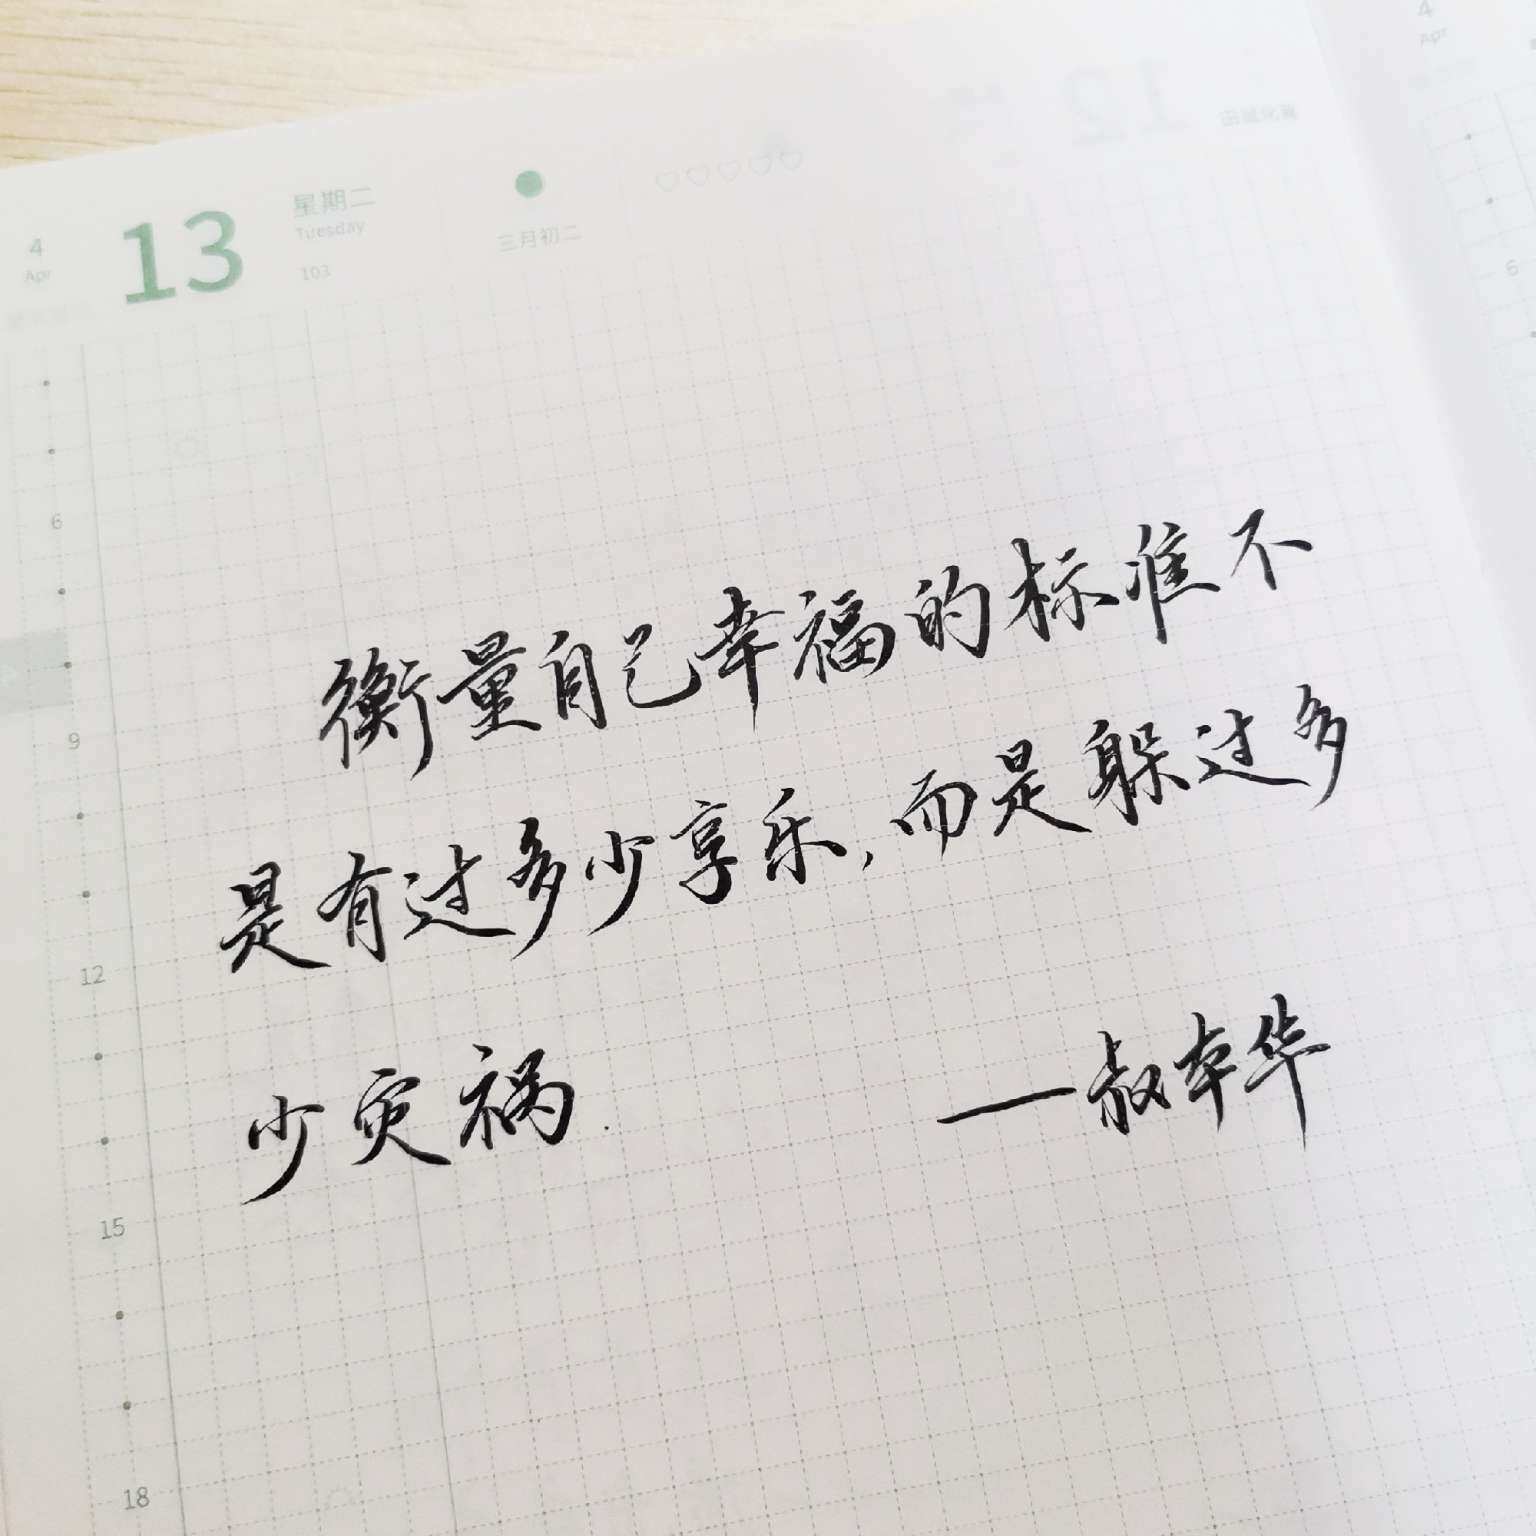 4
Apr
13
星期二
Tuesday
103
三月初二
4
Apr
6
6
9
12
15
18
衡量自己幸福的标准不
是有过多少享乐,而是躲过多
少灾祸.
——叔本华